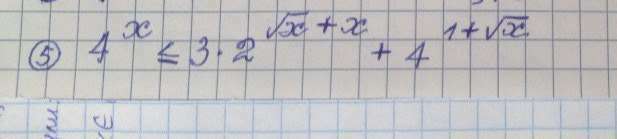 ⑤ 4^x ≤ 3 · 2^(√x + x) + 4^(1 + √x)